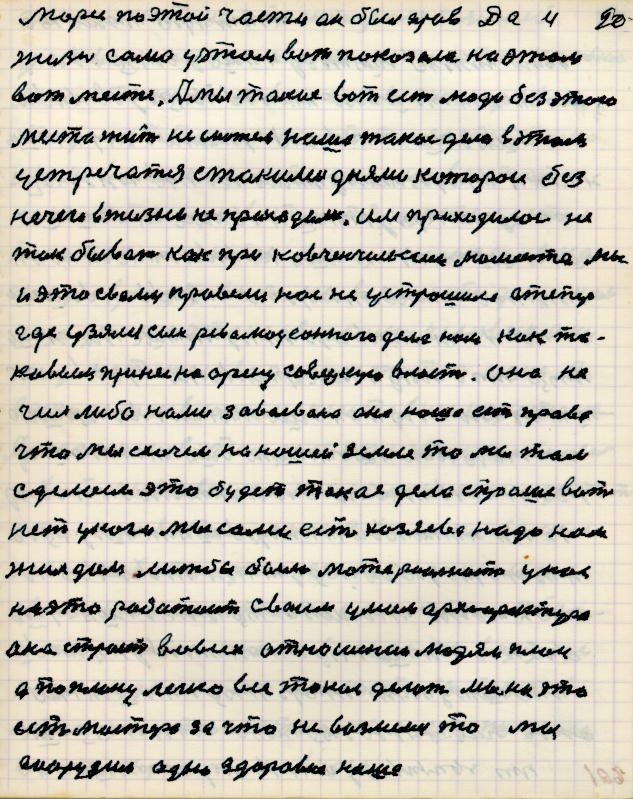 мори по этой части он был прав Да и 20
жизн сама у этом вот показала на этом
вот месте. А мы такие вот ест люди без этого
места жит не сможем наше такое дело в этом
устречатся с такими днями которои без
нечего в жизнь не приходили. Им приходилос не
так бывать как при ковченчиским момента мы
и это свали провели нас не устрошила а тепер
где узялис см революцеонного дела нам как та-
ковыи принес на арену совецкую власт. Она не
чия либо нами завоевана она наша ест права
что мы схочем на нашей земле то мы там
сделаем это будет такае дела спрашеват
нет у кого мы сами есть хозяева надо нам
жил дом лижбы были материалности у нас
на это работают своим умом архетрактура
она строит во всех отношении людям план
а по плану легко все такое делат мы на это
ест мастера за что не возмемся то мы
соорудим адно здоровие наше